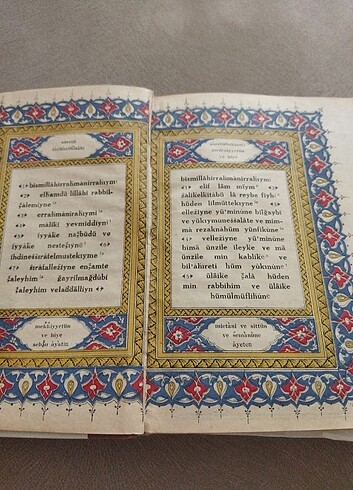 sûretül
bismillâhirrahmânirrahıymi
elhamdü lillâhi rabbil-
ʒâlemiyne
errahmânirrahıymi
mâliki yevmiddiyni
iyyâke naʒbüdü ve
iyyâke nesteʒıynü
ihdinessırâtelmustekıyme
sırâtallezıyne enʒamte
ʒaleyhim ğayrilmağdûbi
ʒaleyhim veladdâlliyn
mekkiyyetün
ve hiye
sebʒu âyâtin
ve hiye
bismillâhirrahmânirrahıymi
elif lâm mîym
zâlikelkitâbü lâ reybe fiyhi
hüden lilmüttekıyne
velleziyne yü'minûne bilğaybi
ve yükıymunessalâte ve mim-
mâ rezaknâhüm yünfikûne
velleziyne yü'minûne bi-
mâ ünzile ileyke ve mâ
ünzile min kablike ve
bil'âhıreti hüm yûkınûne
ülâike ʒalâ hüden
min rabbihim ve ülâike
hümülmüflihûne
mietâni ve sittün
ve semânûne
âyeten